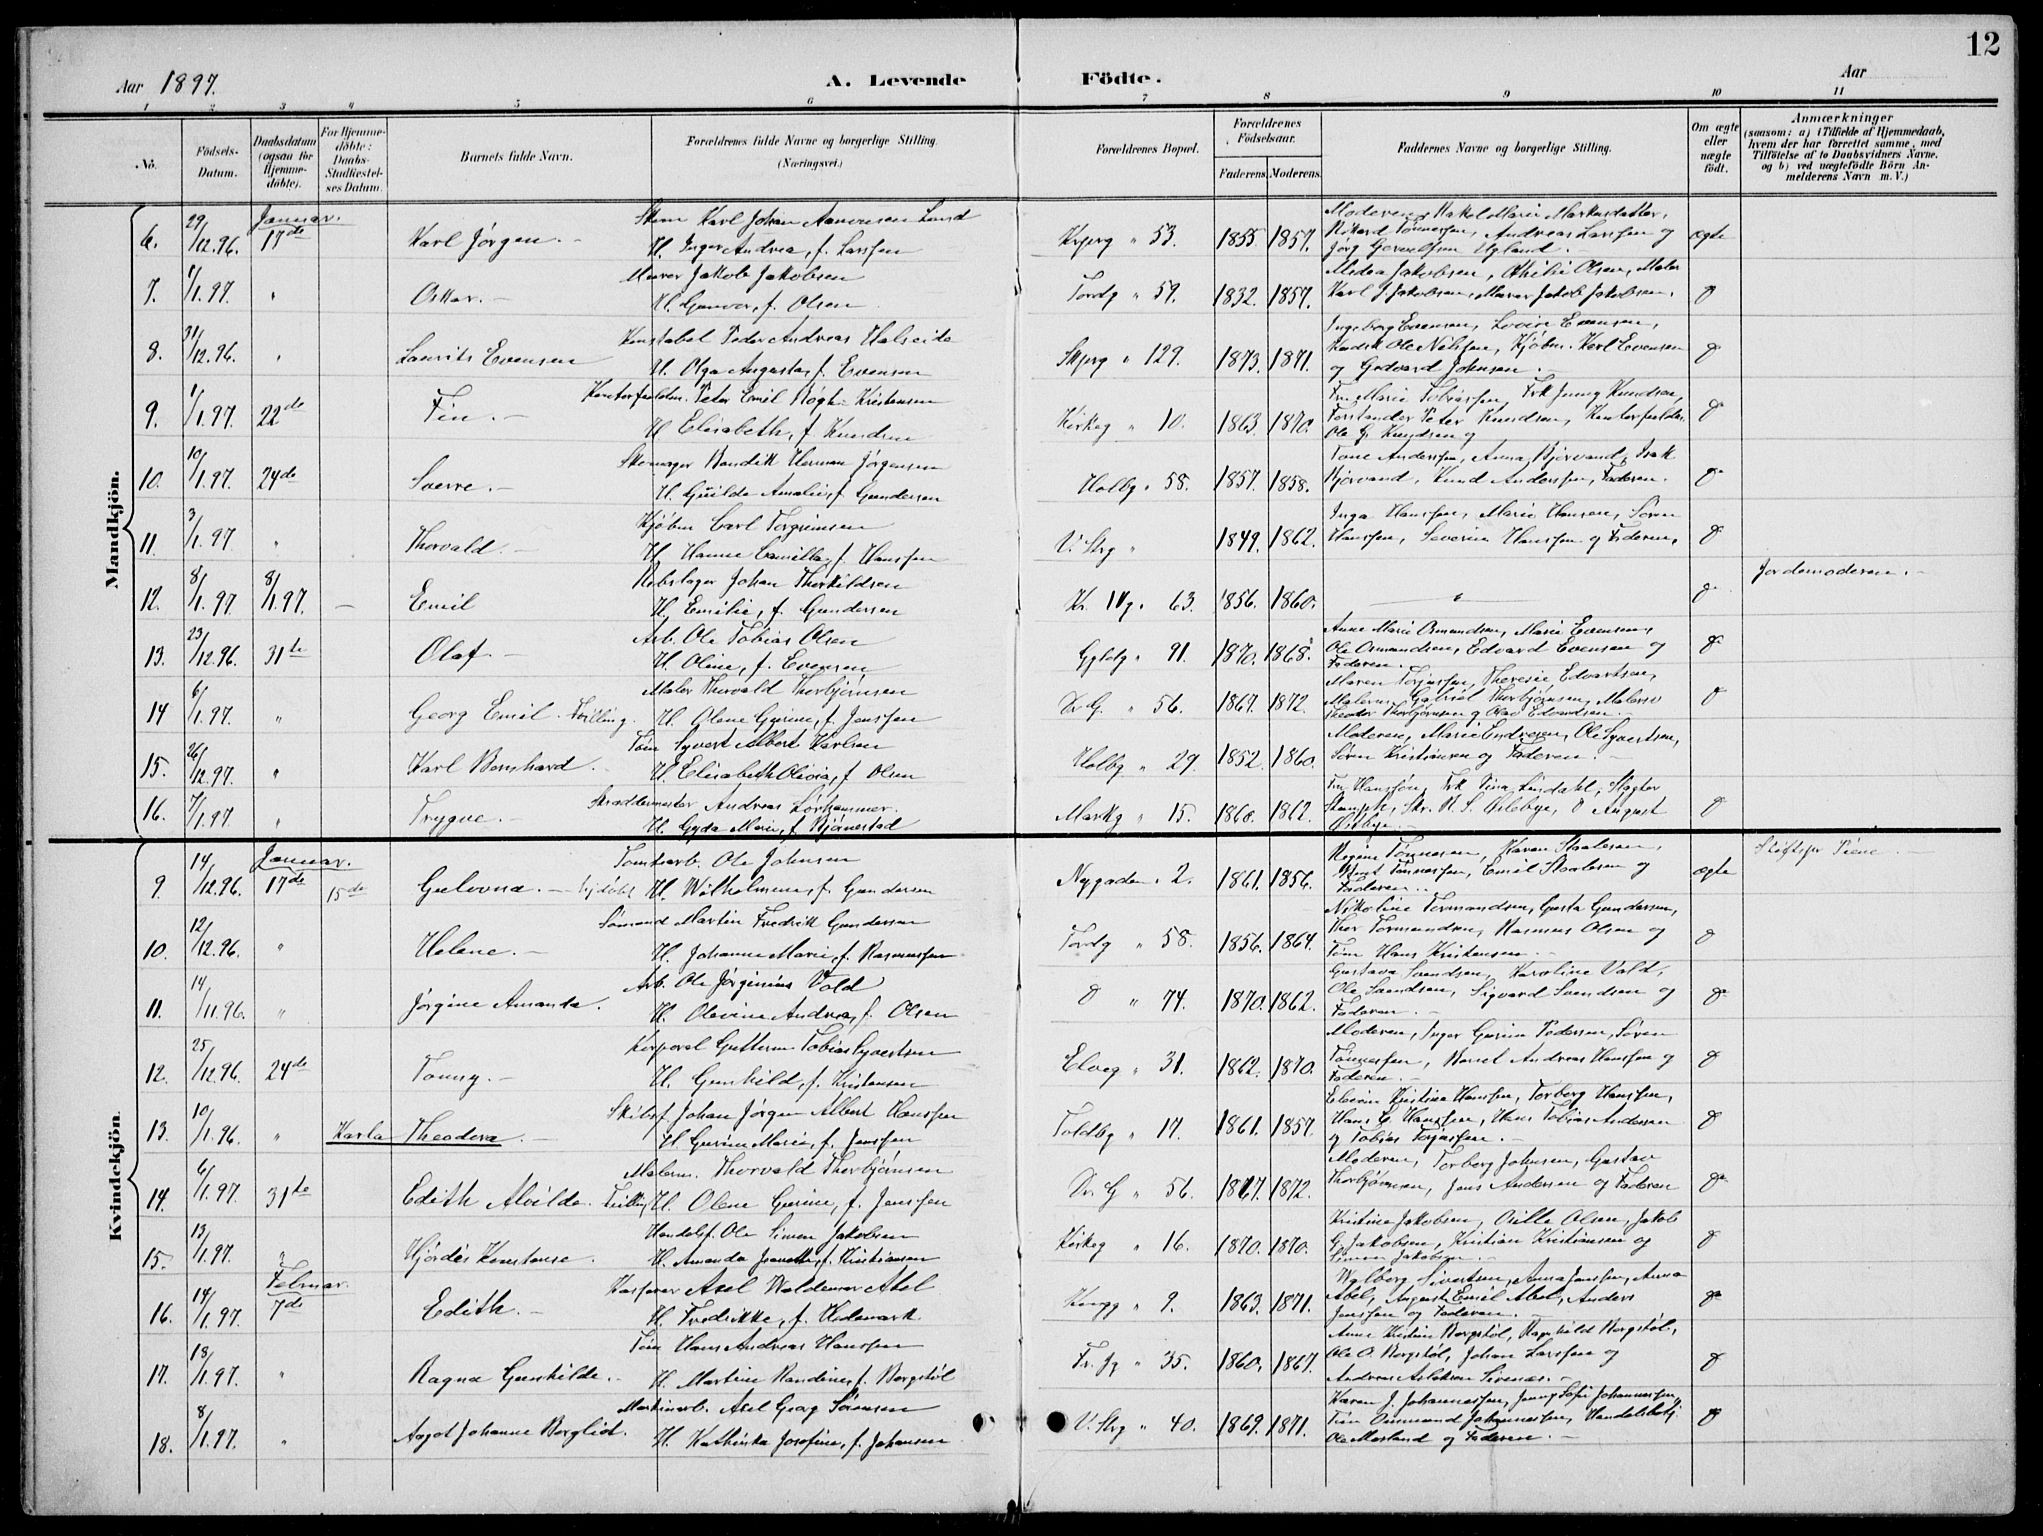 12
Aar 1897.
A. Levende Födte.
Aar
1 2 3 4 5 6 7 8 9 10 11
No.
Födsels-Datum.
Daabsdatum (ogsaa for Hjemme-döbte).
For Hjemme-döbte: Daabs-Stadfæstel-ses Datum.
Barnets fulde Navn.
Forældrenes fulde Navne og borgerlige Stilling. (Næringsvei.)
Forældrenes Bopæl.
Forældrenes Födselsaar.
Faderens. Moderens.
Faddernes Navne og borgerlige Stilling.
Om ægte eller uægte födt.
Anmærkninger
(saasom: a) i Tilfælde af Hjemmedaab,
hvem der har forrettet samme, med
Tilföielse af to Daabsvidners Navne.
og b) ved uægtefödte Börn An-
melderens Navn m. V.)
Mandkjön.
Januar.
6. 29/12.96. 17de Karl Jörgen.
Karl Johan Aanonsen Lund
H. Inger Andrea, f. Larssen
53. 1855 1857.
Andreas Larssen og
ægte
7. 1/1.97. " Oskar.
Murer Jakob Jakobsen
H. Gunvor, f. Olsen
Tordg " 59. 1832. 1857.
Medea Jakobsen, Othilie Olsen, Maler
Karl J. Jakobsen, Murer Jakob Jakobsen.
8. 31/12.96. " Laurits Evensen
Konstabel Peder Andreas Halseide
H. Olga Augusta, f. Evensen
129. 1873. 1871.
Ingeborg Evensen, Lovise Evensen,
Ole Nilssen, Kjöbm. Karl Evensen
og Godvard Johnsen.
9. 1/1.97. 22de Fin.
Peter Emil Bögh-Kristensen
H. Elisabeth, f. Knudsen
Kirkeg " 10. 1863. 1870.
Fru Marie Tobiassen, Frk Jenny Knudsen,
Forstander Peter Knudsen,
Ole G. Knudsen og
10. 10/1.97. 24de Sverre.
Skomager Bendik Herman Jörgensen
H. Amalie, f. Gundersen
Holbg " 58. 1857. 1858.
Tone Anderssen, Anna Bjorvand, Isak
Bjorvand, Knud Anderssen, Faderen.
11. 3/1.97 " Thorvald.
Kjöbm Carl Torgrimsen
H. Hanne Camilla, f. Hanssen
V. Strg " 1849. 1862.
Inga Hanssen, Marie Hansen, Sören
Hanssen, Severin Hanssen og Faderen.
12. 8/1.97 8/1.97. Emil
Rebslager Johan Therkildsen
H. Emilie, f. Gundersen
63. 1856. 1860.
Jordemoderen.
13. 23/12.96. 31te Olaf.
Arb. Ole Tobias Olsen
H. Oline, f. Evensen
Gyldg " 91. 1870. 1868.
Anne Marie Osmundsen, Marie Evensen,
Ole Osmundsen, Edvard Evensen og
Faderen.
14 6/1.97. " Georg Emil. Tvilling.
Maler Thorvald Thorbjörnsen
H. Olene Gurine, f. Jenssen
Dr. G. " 56. 1867. 1872.
Maren Terjessen, Theresie Edvartsen,
Malerm. Gabriel Thorbjörnsen, Malersv
Theodor Thorbjörnsen og Olav Edvardsen.
15. 26/12.97. " Karl Bernhard.
Töm Syvert Albert Karlsen
H. Elisabeth Olivia, f. Olsen
Holbg " 29. 1852. 1860.
Moderen, Marie Endresen, Ole Syvertsen,
Sören Kristiansen og Faderen.
16. 7/1.97. " Trygve.
Skræddermester Andreas Lörhammer.
H. Gyda Marie, f. Bjönnestad
Markg " 15. 1860. 1862.
August
Kvindekjön.
Januar.
9. 14/12.96. 17de 15de Gulovna.
Ole Johnsen
H. Wilhelmine, f. Gundersen
Nygaden " 2. 1861. 1856.
Regine Tönnesen, Karen Staalesen,
Tönnessen, Emil Staalesen og
Faderen.
ægte
10. 12/12.96. " Helene.
Sömand Martin Fredrik Gundersen
H. Johanne Marie, f. Rasmussen
Tordg " 58. 1856. 1864.
Nikoline Tormundsen, Gusta Gundersen,
Thor Tormundsen, Rasmus Olsen og
Töm Hans Kristensen.
11. 14/11.96. " Jörgine Amanda.
Arb. Ole Jörginius Vold
H. Olevine Andrea, f. Olsen
" 74. 1870. 1862.
Gustava Svendsen, Karoline Vald,
Ole Svendsen, Sigvard Svendsen og
Faderen.
12. 25/12.96. 24de Tonny.
Korporal Guttorm Tobias Syvertsen
H. Gunhild, f. Kristensen
Elveg " 31. 1862. 1870.
Moderen, Inger Gurine Pedersen, Sören
Tönnessen, Bernt Andreas Hanssen og
Faderen.
13. 10/1.96. " Karla Theodora.
Skibsf. Johan Jörgen Albert Hanssen
H. Gurine Marie, f. Jenssen
Toldbg " 17. 1861. 1857.
Kristine Hanssen, Torborg Hanssen,
Hans C. Hanssen, Hans Tobias Andersen
og Tobias Terjessen.
14. 6/1.97. 31te Edith Alvilde. Tvilling
Malerm. Thorvald Thorbjörnsen
H. Olene Gurine, f. Jenssen
Dr. G " 56. 1867. 1872.
Moderen, Torborg Johnsen, Gustav
Thorbjörnsen, Jens Andersen og Faderen
15. 13/1.97. " Hjördis Konstanse.
Handelsf. Ole Simon Jakobsen
H. Amanda Jeanette, f. Kristiansen
Kirkeg " 16. 1870. 1870.
Kristine Jakobsen, Olsen, Jakob
G. Jakobsen, Kristian Kristiansen og
Simon Jakobsen.
Februar.
16. 14/1.97. 7de Edith.
Kasserer Axel Waldemar Abel
H. Fredrikke, f. Hedemark.
Kongg " 9. 1863. 1871.
Walborg Sivertsen, Anna Jenssen, Anna
Abel, August Emil Abel, Anders
Jenssen og Faderen.
17. 18/1.97. " Ragna Gunhilde.
Töm Hans Andreas Hanssen
H. Martine Randine, f. Borgstöl
35. 1860. 1867.
Anne Kristine Borgstöl, Ragnhild Borgstöl,
Ole O. Borgstöl, Johan Larssen og
Andreas Aslaksen
18. 8/1.97. " Aagot Johanne Bergliot.
Maskinarb. Axel Georg Sörensen
H. Kathinka Josefine, f. Johansen
V. Strg " 40. 1869. 1871.
Karen J. Johannessen, Jenny Sofie Johannessen,
Töm Osmund Johannessen,
Ole Mosland og Faderen.